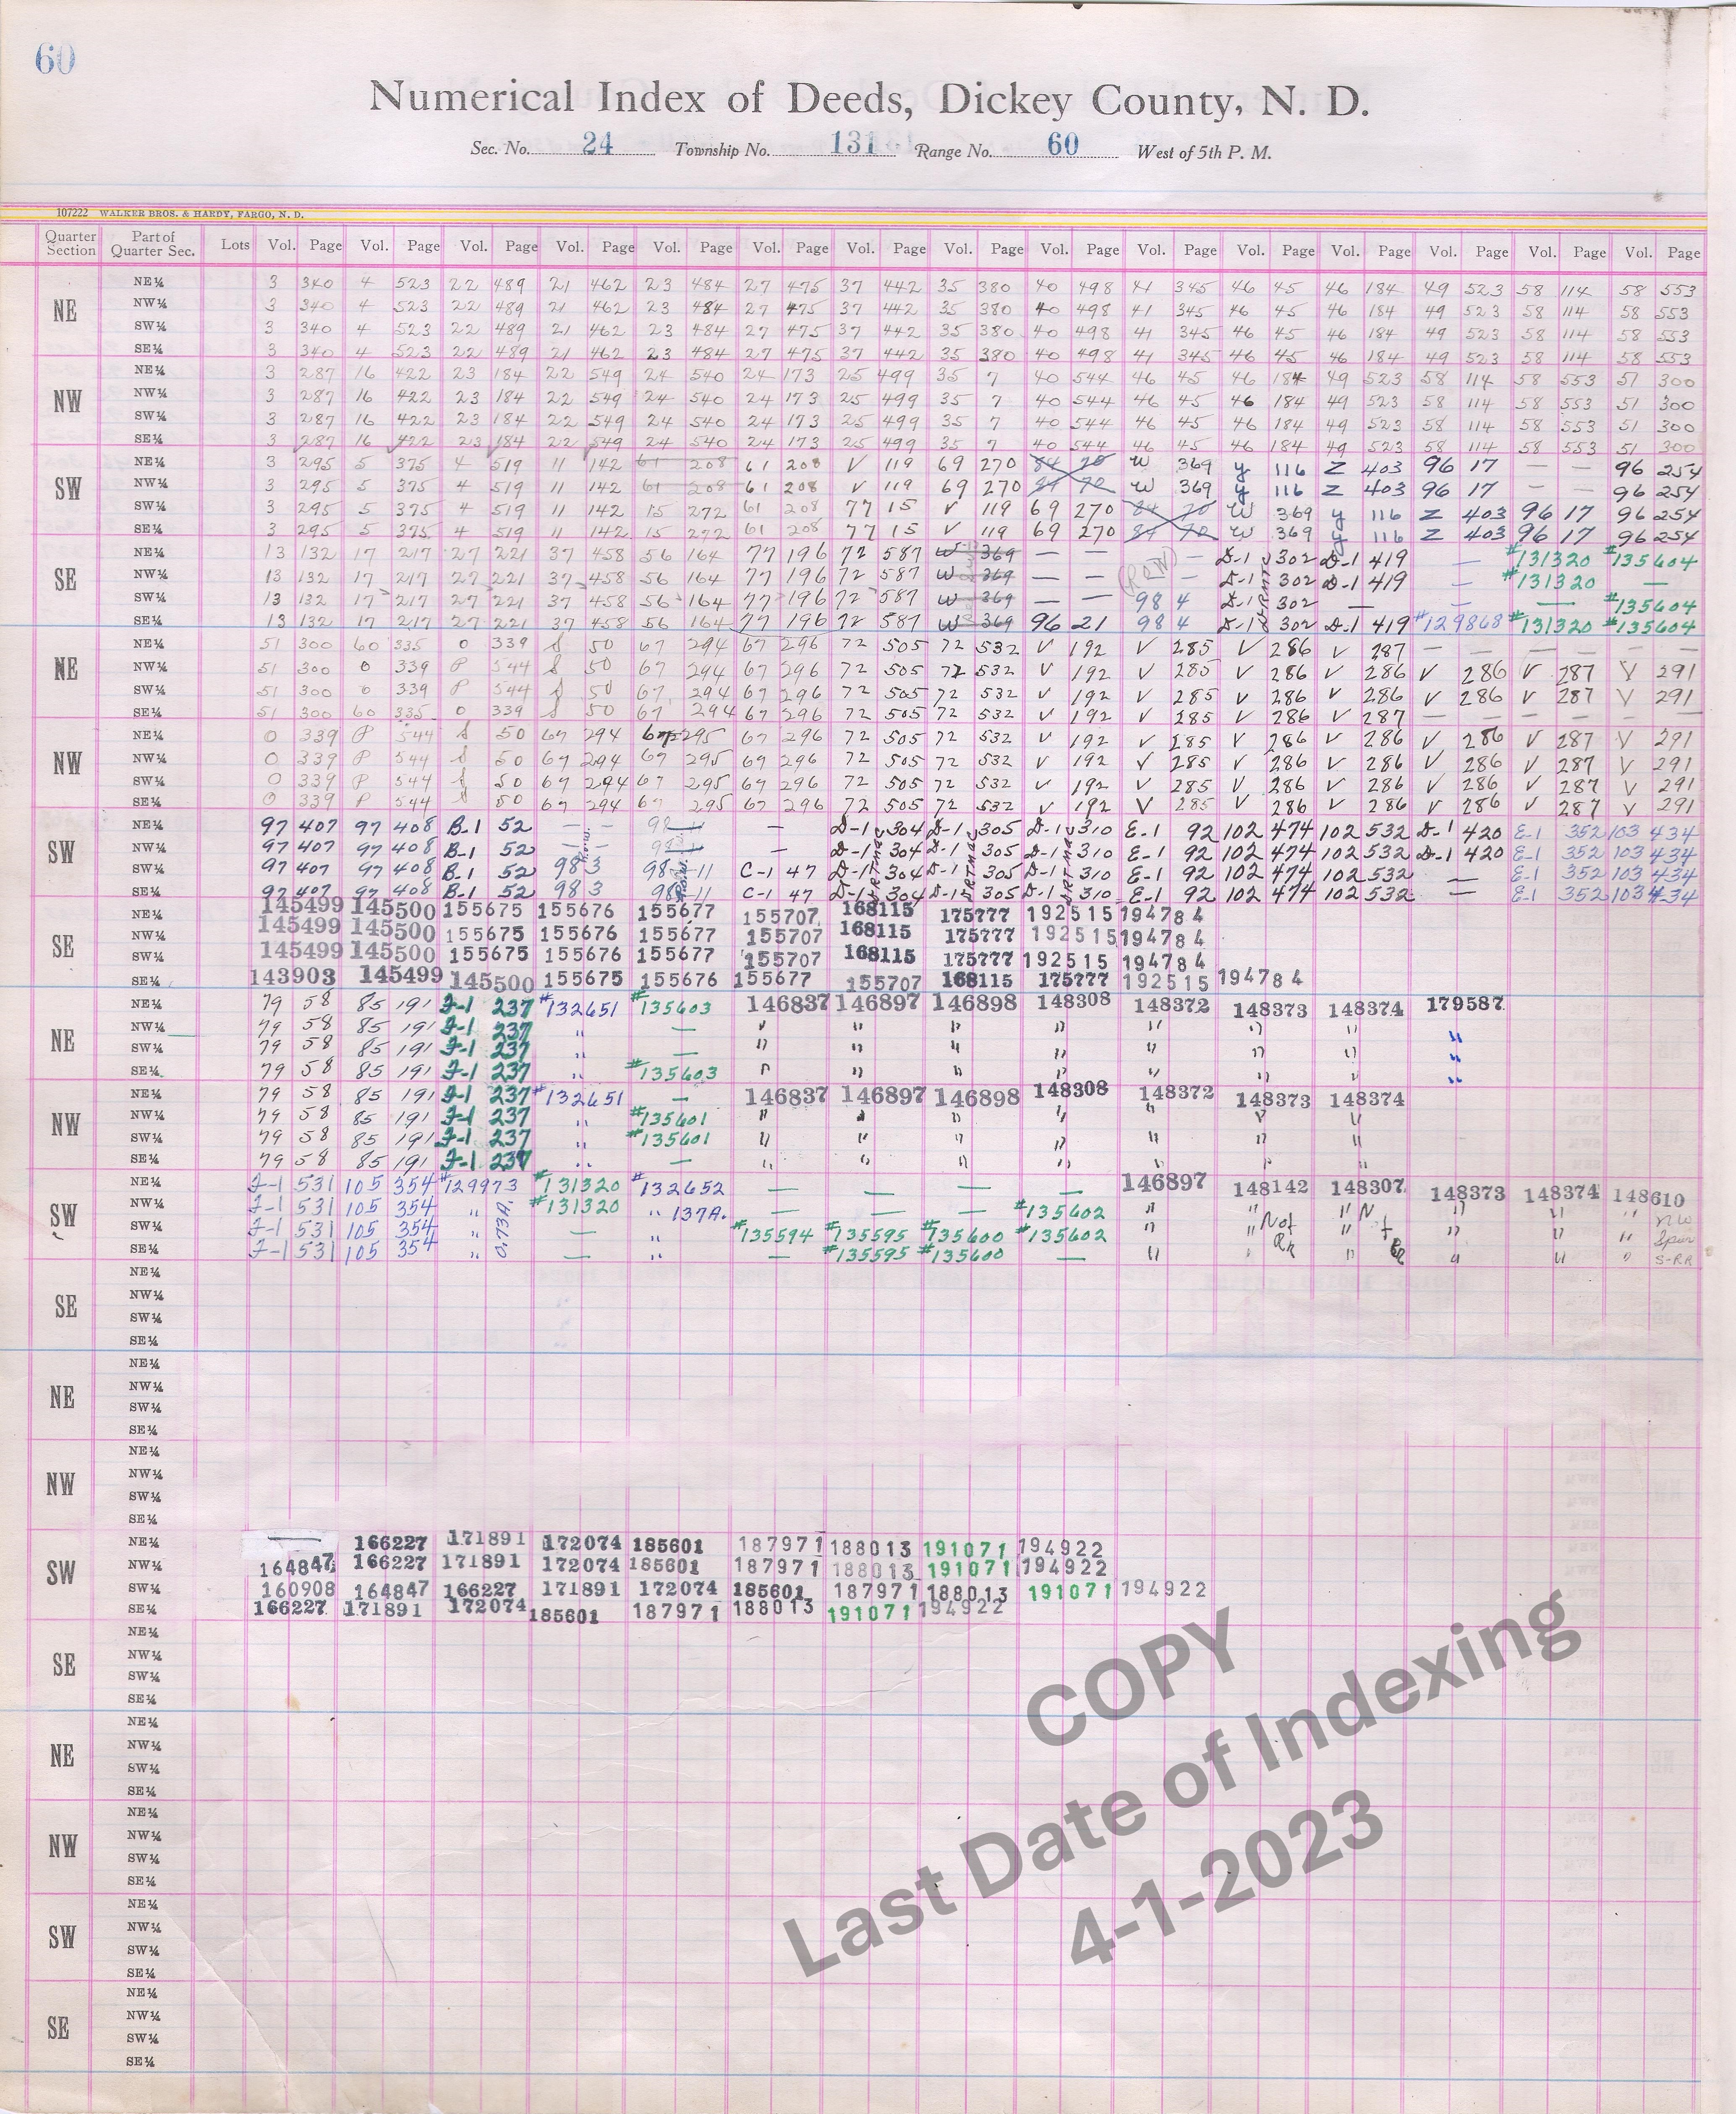 60
Numerical Index of Deeds, Dickey County, N. D.
Sec. No. 24 Township No. 131 Range No. 60 West of 5th P. M.
107222 WALKER BROS. & HARDY, FARGO, N. D.
Quarter Section Part of Quarter Sec. Lots Vol. Page Vol. Page Vol. Page Vol. Page Vol. Page Vol. Page Vol. Page Vol. Page Vol. Page Vol. Page Vol. Page Vol. Page Vol. Page Vol. Page Vol. Page
NE
NE¼ 3 340 4 523 22 489 21 462 23 484 27 475 37 442 35 380 40 498 41 345 46 45 46 184 49 523 58 114 58 553
NW¼ 3 340 4 523 22 489 21 462 23 484 27 475 37 442 35 380 40 498 41 345 46 45 46 184 49 523 58 114 58 553
SW¼ 3 340 4 523 22 489 21 462 23 484 27 475 37 442 35 380 40 498 41 345 46 45 46 184 49 523 58 114 58 553
SE¼ 3 340 4 523 22 489 21 462 23 484 27 475 37 442 35 380 40 498 41 345 46 45 46 184 49 523 58 114 58 553
NW
NE¼ 3 287 16 422 23 184 22 549 24 540 24 173 25 499 35 7 40 544 46 45 46 184 49 523 58 114 58 553 51 300
NW¼ 3 287 16 422 23 184 22 549 24 540 24 173 25 499 35 7 40 544 46 45 46 184 49 523 58 114 58 553 51 300
SW¼ 3 287 16 422 23 184 22 549 24 540 24 173 25 499 35 7 40 544 46 45 46 184 49 523 58 114 58 553 51 300
SE¼ 3 287 16 422 23 184 22 549 24 540 24 173 25 499 35 7 40 544 46 45 46 184 49 523 58 114 58 553 51 300
SW
NE¼ 3 295 5 375 4 519 11 142 61 208 61 208 V 119 69 270 84 70 W 369 y 116 Z 403 96 17 — — 96 254
NW¼ 3 295 5 375 4 519 11 142 61 208 61 208 V 119 69 270 84 70 W 369 y 116 Z 403 96 17 — — 96 254
SW¼ 3 295 5 375 4 519 11 142 15 272 61 208 77 15 V 119 69 270 84 70 W 369 y 116 Z 403 96 17 96 254
SE¼ 3 295 5 375 4 519 11 142 15 272 61 208 77 15 V 119 69 270 84 70 W 369 y 116 Z 403 96 17 96 254
SE
NE¼ 13 132 17 217 27 221 37 458 56 164 77 196 72 587 W 369 — — (ROW) — D-1 302 D-1 419 — #131320 #135604
NW¼ 13 132 17 217 27 221 37 458 56 164 77 196 72 587 W 369 — — — D-1 302 D-1 419 — #131320 —
SW¼ 13 132 17 217 27 221 37 458 56 164 77 196 72 587 W 369 — — 98 4 D-1 302 — — — #135604
SE¼ 13 132 17 217 27 221 37 458 56 164 77 196 72 587 W 369 96 21 98 4 D-1 302 D-1 419 #129868 #131320 #135604
NE
NE¼ 51 300 60 335 0 339 S 50 67 294 67 296 72 505 72 532 V 192 V 285 V 286 V 287 — — — — — —
NW¼ 51 300 0 339 P 544 S 50 67 294 67 296 72 505 72 532 V 192 V 285 V 286 V 286 V 286 V 287 V 291
SW¼ 51 300 0 339 P 544 S 50 67 294 67 296 72 505 72 532 V 192 V 285 V 286 V 286 V 286 V 287 V 291
SE¼ 51 300 60 335 0 339 S 50 67 294 67 296 72 505 72 532 V 192 V 285 V 286 V 287 — — — — — —
NW
NE¼ 0 339 P 544 S 50 67 294 67 295 67 296 72 505 72 532 V 192 V 285 V 286 V 286 V 286 V 287 V 291
NW¼ 0 339 P 544 S 50 67 294 67 295 67 296 72 505 72 532 V 192 V 285 V 286 V 286 V 286 V 287 V 291
SW¼ 0 339 P 544 S 50 67 294 67 295 67 296 72 505 72 532 V 192 V 285 V 286 V 286 V 286 V 287 V 291
SE¼ 0 339 P 544 S 50 67 294 67 295 67 296 72 505 72 532 V 192 V 285 V 286 V 286 V 286 V 287 V 291
SW
NE¼ 97 407 97 408 B-1 52 — — 98 — D-1 304 D-1 305 D-1 310 E-1 92 102 474 102 532 D-1 420 E-1 352 103 434
NW¼ 97 407 97 408 B-1 52 — — — D-1 304 D-1 305 D-1 310 E-1 92 102 474 102 532 D-1 420 E-1 352 103 434
SW¼ 97 407 97 408 B-1 52 98 3 98 11 C-1 47 D-1 304 D-1 305 D-1 310 E-1 92 102 474 102 532 — E-1 352 103 434
SE¼ 97 407 97 408 B-1 52 98 3 98 11 C-1 47 D-1 304 D-1 305 D-1 310 E-1 92 102 474 102 532 — E-1 352 103 434
SE
NE¼ 145499 145500 155675 155676 155677 155707 168115 175777 192515 194784
NW¼ 145499 145500 155675 155676 155677 155707 168115 175777 192515 194784
SW¼ 145499 145500 155675 155676 155677 155707 168115 175777 192515 194784
SE¼ 143903 145499 145500 155675 155676 155677 155707 168115 175777 192515 194784
NE
NE¼ 79 58 85 191 F-1 237 #132651 #135603 146837 146897 146898 148308 148372 148373 148374 179587
NW¼ 79 58 85 191 F-1 237 " — " " " " " " " "
SW¼ 79 58 85 191 F-1 237 " — " " " " " " " "
SE¼ 79 58 85 191 F-1 237 " #135603 " " " " " " " "
NW
NE¼ 79 58 85 191 F-1 237 #132651 — 146837 146897 146898 148308 148372 148373 148374
NW¼ 79 58 85 191 F-1 237 " #135601 " " " " " " "
SW¼ 79 58 85 191 F-1 237 " #135601 " " " " " " "
SE¼ 79 58 85 191 F-1 237 " — " " " " " " "
SW
NE¼ F-1 531 105 354 #129973 #131320 #132652 — — — — 146897 148142 148307 148373 148374 148610
NW¼ F-1 531 105 354 " 0.73A. #131320 " 137A. — — — #135602 " " " N " " " NW
SW¼ F-1 531 105 354 " — " #135594 #135595 #135600 #135602 " " N of " f " " " Spur
SE¼ F-1 531 105 354 " — " — #135595 #135600 — " " RR " RR " " " S-RR
SE
NE¼
NW¼
SW¼
SE¼
NE
NE¼
NW¼
SW¼
SE¼
NW
NE¼
NW¼
SW¼
SE¼
SW
NE¼ — 166227 171891 172074 185601 187971 188013 191071 194922
NW¼ 164847 166227 171891 172074 185601 187971 188013 191071 194922
SW¼ 160908 164847 166227 171891 172074 185601 187971 188013 191071 194922
SE¼ 166227 171891 172074 185601 187971 188013 191071 194922
SE
NE¼
NW¼
SW¼
SE¼
NE
NE¼
NW¼
SW¼
SE¼
NW
NE¼
NW¼
SW¼
SE¼
SW
NE¼
NW¼
SW¼
SE¼
SE
NE¼
NW¼
SW¼
SE¼
COPY
Last Date of Indexing
4-1-2023